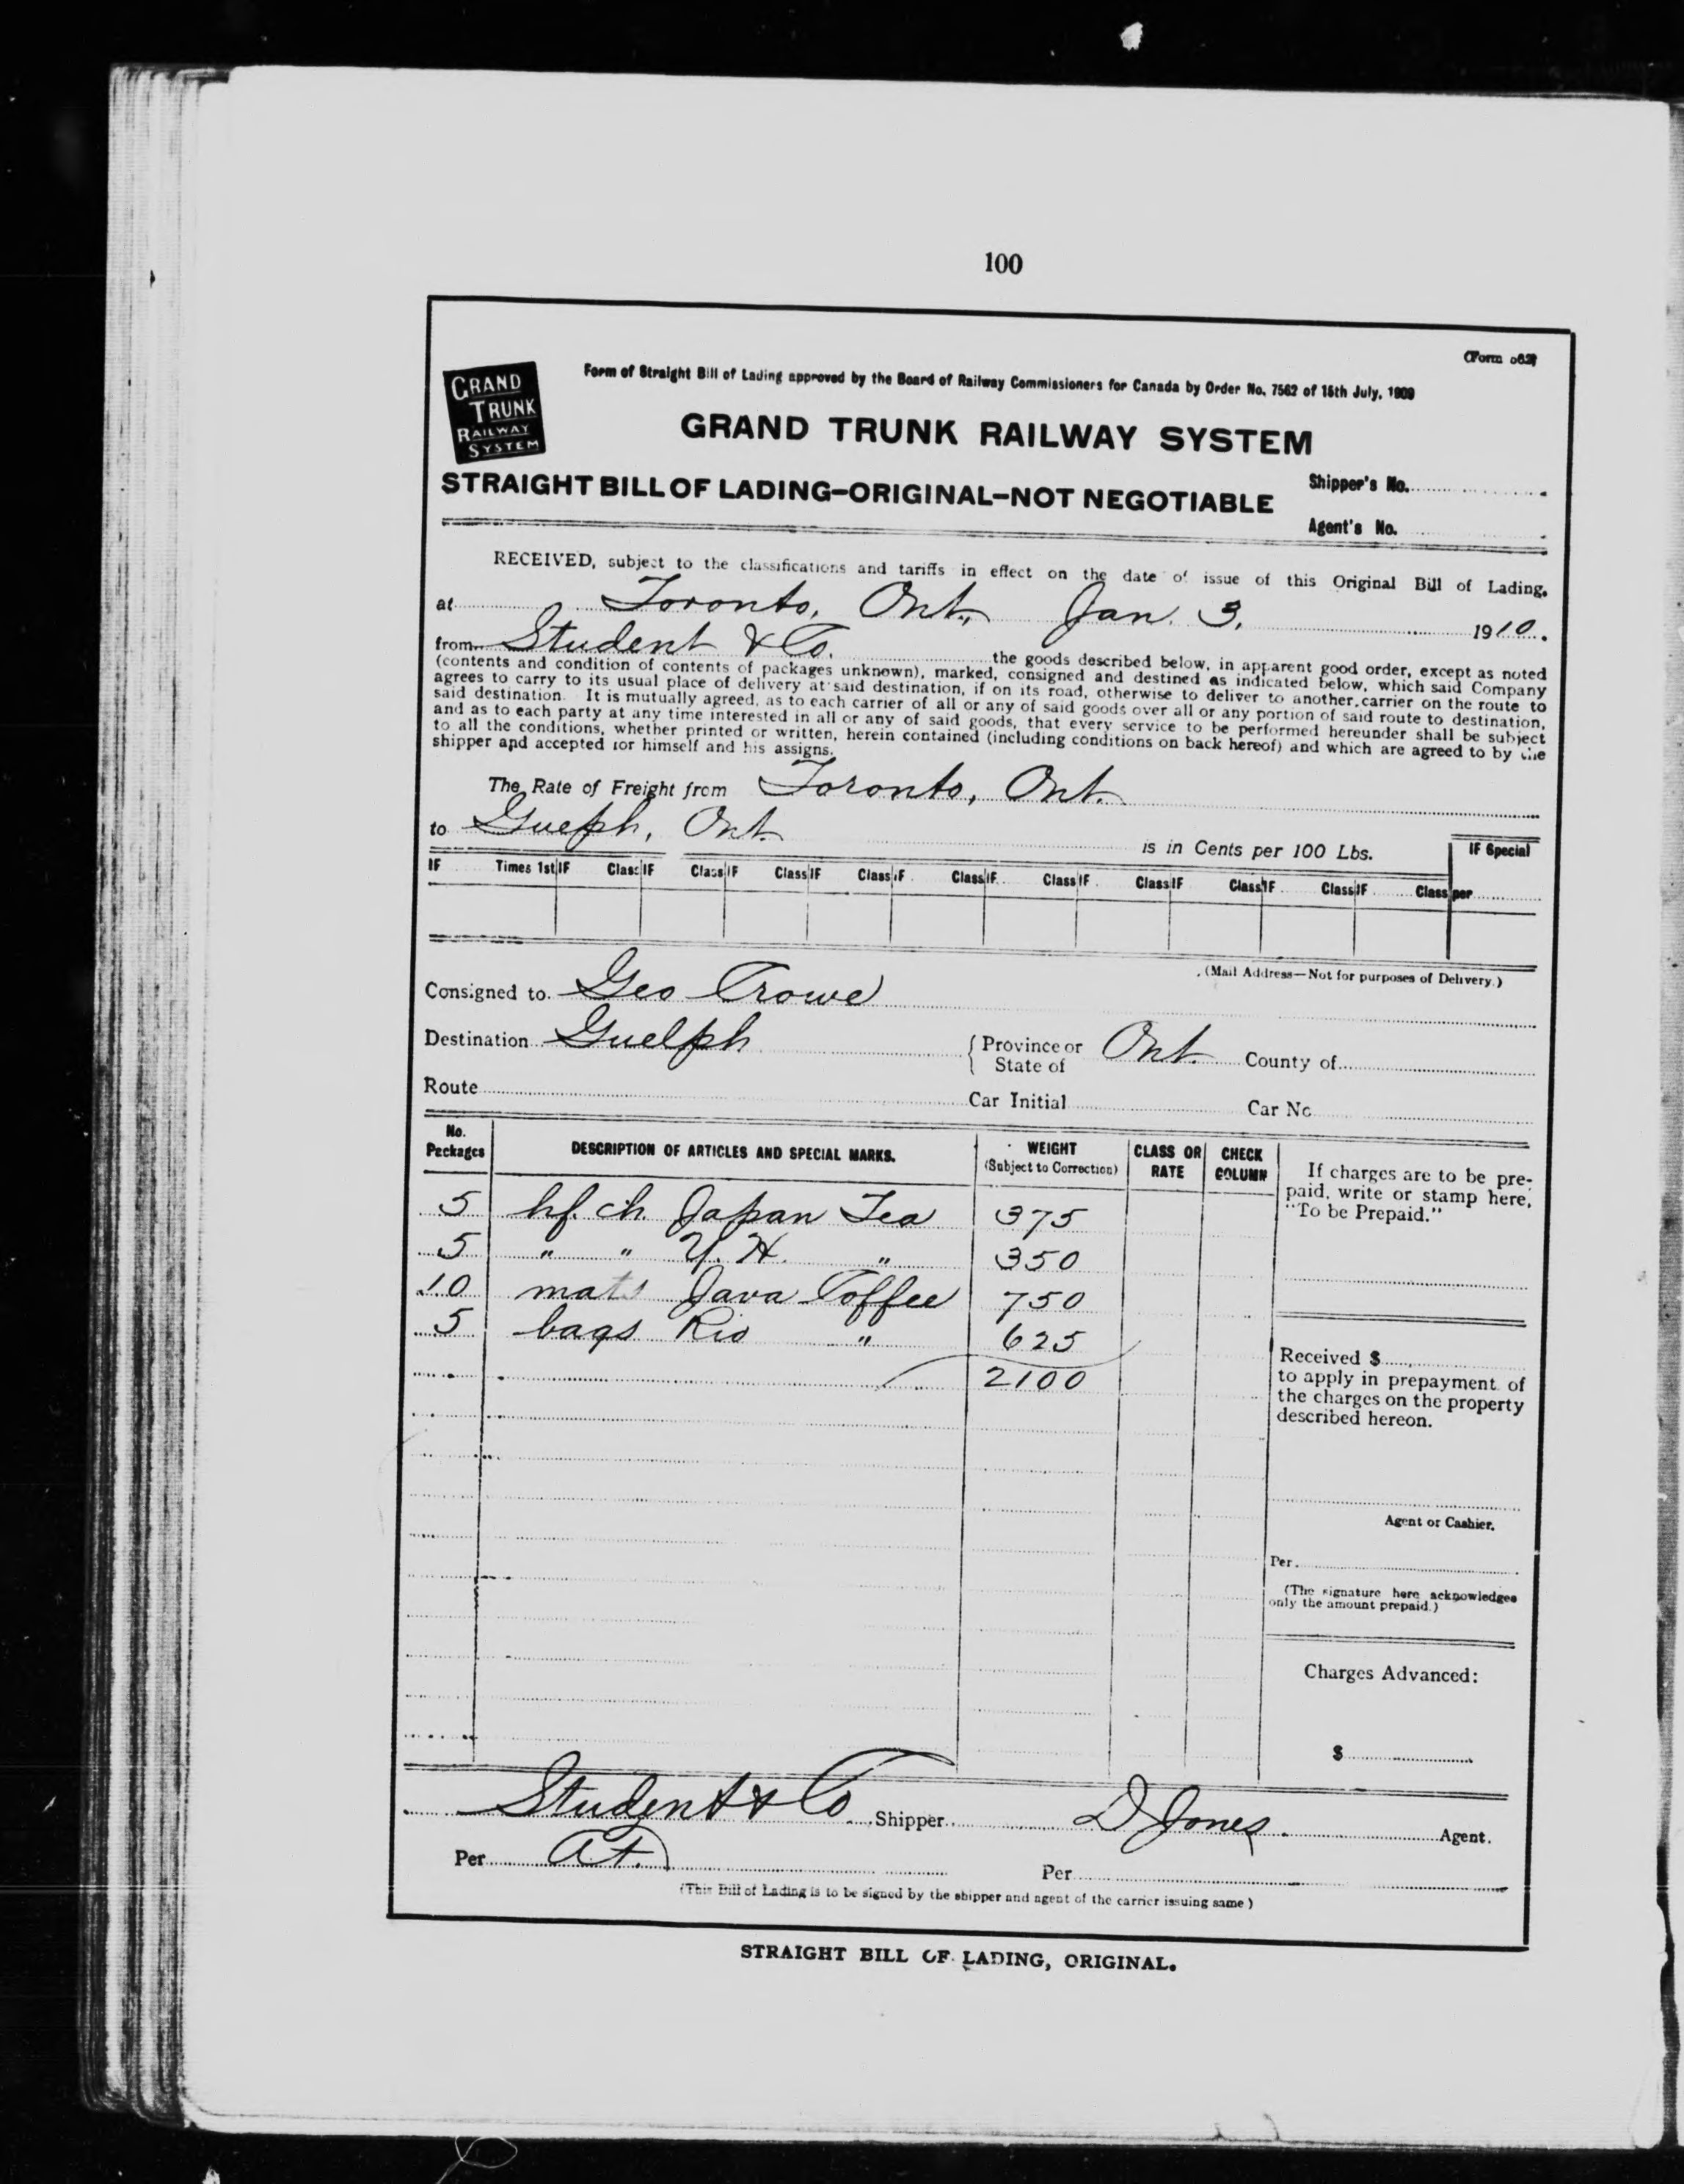 100
(Form
GRAND
TRUNK
RAILWAY
SYSTEM
Form of Straight Bill of Lading approved by the Board of Railway Commissioners for Canada by Order No. 7562 of 15th July, 1909
GRAND TRUNK RAILWAY SYSTEM
STRAIGHT BILL OF LADING-ORIGINAL-NOT NEGOTIABLE
Shipper's No.
Agent's No.
RECEIVED, subject to the classifications and tariffs in effect on the date of issue of this Original Bill of Lading.
at Toronto, Ont., Jan. 3, 1910.
from Student & Co. the goods described below, in apparent good order, except as noted
(contents and condition of contents of packages unknown), marked, consigned and destined as indicated below, which said Company
agrees to carry to its usual place of delivery at said destination, if on its road, otherwise to deliver to another carrier on the route to
said destination. It is mutually agreed, as to each carrier of all or any of said goods over all or any portion of said route to destination,
and as to each party at any time interested in all or any of said goods, that every service to be performed hereunder shall be subject
to all the conditions, whether printed or written, herein contained (including conditions on back hereof) and which are agreed to by the
shipper and accepted for himself and his assigns.
The Rate of Freight from Toronto, Ont.
to Guelph, Ont. is in Cents per 100 Lbs.
IF Special
IF Times 1st IF Class IF Class IF Class IF Class IF Class IF Class IF Class IF Class IF Class IF Class per
(Mail Address—Not for purposes of Delivery.)
Consigned to Geo Crowe
Destination Guelph { Province or State of Ont. County of
Route Car Initial Car No
No. Packages DESCRIPTION OF ARTICLES AND SPECIAL MARKS. WEIGHT (Subject to Correction) CLASS OR RATE CHECK COLUMN
5 hf. ch. Japan Tea 375
5 " " Y. H. " 350
10 mats Java Coffee 750
5 bags Rio " 625
2100
If charges are to be pre-
paid, write or stamp here,
"To be Prepaid."
Received $
to apply in prepayment of
the charges on the property
described hereon.
Agent or Cashier.
Per
(The signature here acknowledges
only the amount prepaid.)
Charges Advanced:
$
Student & Co Shipper D Jones Agent.
Per Per
(This Bill of Lading is to be signed by the shipper and agent of the carrier issuing same)
STRAIGHT BILL OF LADING, ORIGINAL.